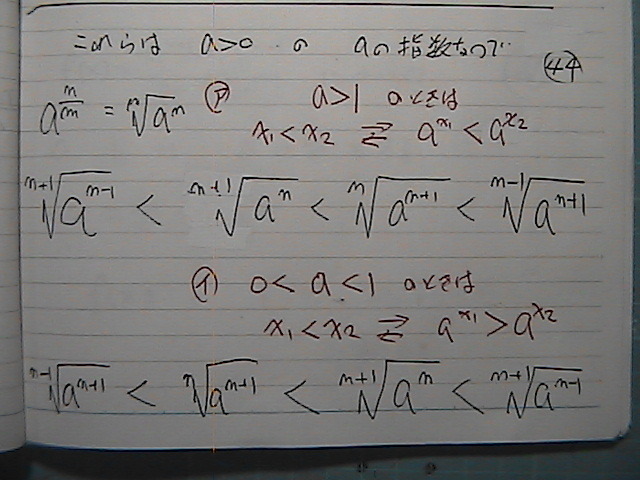 これらは a>0 の aの指数なので
44
a^{n/m} = ᵐ√aⁿ ㋐ a>1 のときは
x₁<x₂ ⇄ a^{x₁}<a^{x₂}
ⁿ⁺¹√a^{n-1} < ⁿ⁺¹√a^{n} < ⁿ√a^{n+1} < ⁿ⁻¹√a^{n+1}
㋑ 0<a<1 のときは
x₁<x₂ ⇄ a^{x₁}>a^{x₂}
ⁿ⁻¹√a^{n+1} < ⁿ√a^{n+1} < ⁿ⁺¹√a^{n} < ⁿ⁺¹√a^{n-1}